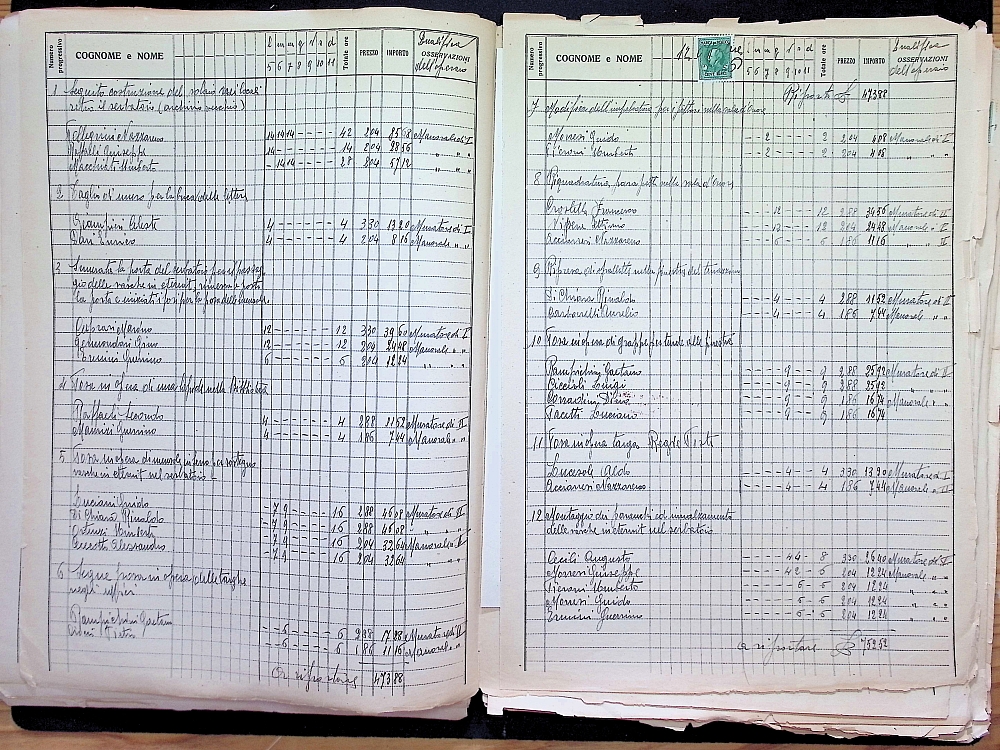 Numero progressivo COGNOME e NOME l m m g v s d Totale ore PREZZO IMPORTO Qualifica OSSERVAZIONI dell'operaio
5 6 7 8 9 10 11
1 Seguito costruzione del solaio nei locali
retro il serbatoio (archivio vecchio)
Pellegrini Nazzareno 14 14 14 42 2.04 85 68 Manovale di I
Giuseppe 14 - 14 2.04 28 56 " " "
Macchiati Umberto - 14 14 - 28 2.04 57 12 " " "
2 Taglio di muro per la buca delle lettere
Giampieri Celeste 4 - - - - - - 4 3.30 13 20 Muratore di I
Dari Enrico 4 - - - - - - 4 2.04 8 16 Manovale " "
3 Smurata la porta del serbatoio per il passag-
gio delle vasche in eternit, rimessa a posto
la porta e iniziati i fori per la posa delle mensole
Caprari Mariano 12 - - - - - - 12 3.30 39 60 Muratore di I
Germondari Gino 12 - - - - - - 12 2.04 24 48 Manovale " "
Ermini Guerrino 6 - - - - - - 6 2.04 12 24 " " "
4 Posa in opera di una lapide nella Biblioteca
Raffaeli Secondo 4 - - - - - - 4 2.88 11 52 Muratore di II
Maurizi Guerrino 4 - - - - - - 4 1.86 7 44 Manovale " "
5 Posa in opera di mensole in ferro per sostegno
vasche in eternit nel serbatoio
Luciani Guido - 7 9 - - - - 16 2.88 46 08 Muratore di II
Di Chiara Rinaldo - 7 9 - - - - 16 2.88 46 08 " " "
Umberto - 7 9 - - - - 16 2.04 32 64 Manovale di I
Ceccotti Alessandro - 7 9 - - - - 16 2.04 32 64 " " "
6 Segue posa in opera delle targhe
negli uffici
Rampichini Gaetano - - 6 - - - - 6 2.88 17 28 Muratore di II
Pietro - - 6 - - - - 6 1.86 11 16 Manovale " "
a riportare 473 88
Numero progressivo COGNOME e NOME 12 l m m g v s d Totale ore PREZZO IMPORTO Qualifica OSSERVAZIONI dell'operaio
5 6 7 8 9 10 11
Riporto £ 473 88
7 Modifica dell'impalcatura per i pittori nella sala d'onore
Moresi Guido - - 2 - - - - 2 2.04 4 08 Manovale di I
Pieroni Umberto - - 2 - - - - 2 2.04 4 08 " " "
8 Riquadratura parapetti nella sala d'onore
Crosletta Francesco - - 12 - - - - 12 2.88 34 56 Muratore di II
Vittorio - - 12 - - - - 12 2.04 24 48 Manovale " I
Accurseri Nazzareno - - 6 - - - - 6 1.86 11 16 " " II
9 Ripresa di spallette nella finestra del terrazzino
Di Chiara Rinaldo - - - 4 - - - 4 2.88 11 52 Muratore di II
Barbarelli Aurelio - - - 4 - - - 4 1.86 7 44 Manovale " "
10 Posa in opera di grappe per tende alle finestre
Rampichini Gaetano - - - 9 - - - 9 2.88 25 92 Muratore di II
Piccioli Luigi - - - 9 - - - 9 2.88 25 92 " "
Corradini Silvio - - - 9 - - - 9 1.86 16 74 Manovale " "
Pacetti Luciano - - - 9 - - - 9 1.86 16 74 " "
11 Posa in opera targa Regie Poste
Lucesole Aldo - - - - 4 - - 4 3.30 13 20 Muratore di I
Accurseri Nazzareno - - - - 4 - - 4 1.86 7 44 Manovale " II
12 Montaggio dei paranchi ed innalzamento
delle vasche in eternit nel serbatoio
Cecili Augusto - - - - 4 4 - 8 3.30 26 40 Muratore di I
Moresi Giuseppe - - - - 4 2 - 6 2.04 12 24 Manovale " "
Pieroni Umberto - - - - - 6 - 6 2.04 12 24 " " "
Moresi Guido - - - - - 6 - 6 2.04 12 24 " " "
Ermini Guerrino - - - - - 6 - 6 2.04 12 24 " " "
a riportare £ 752 52